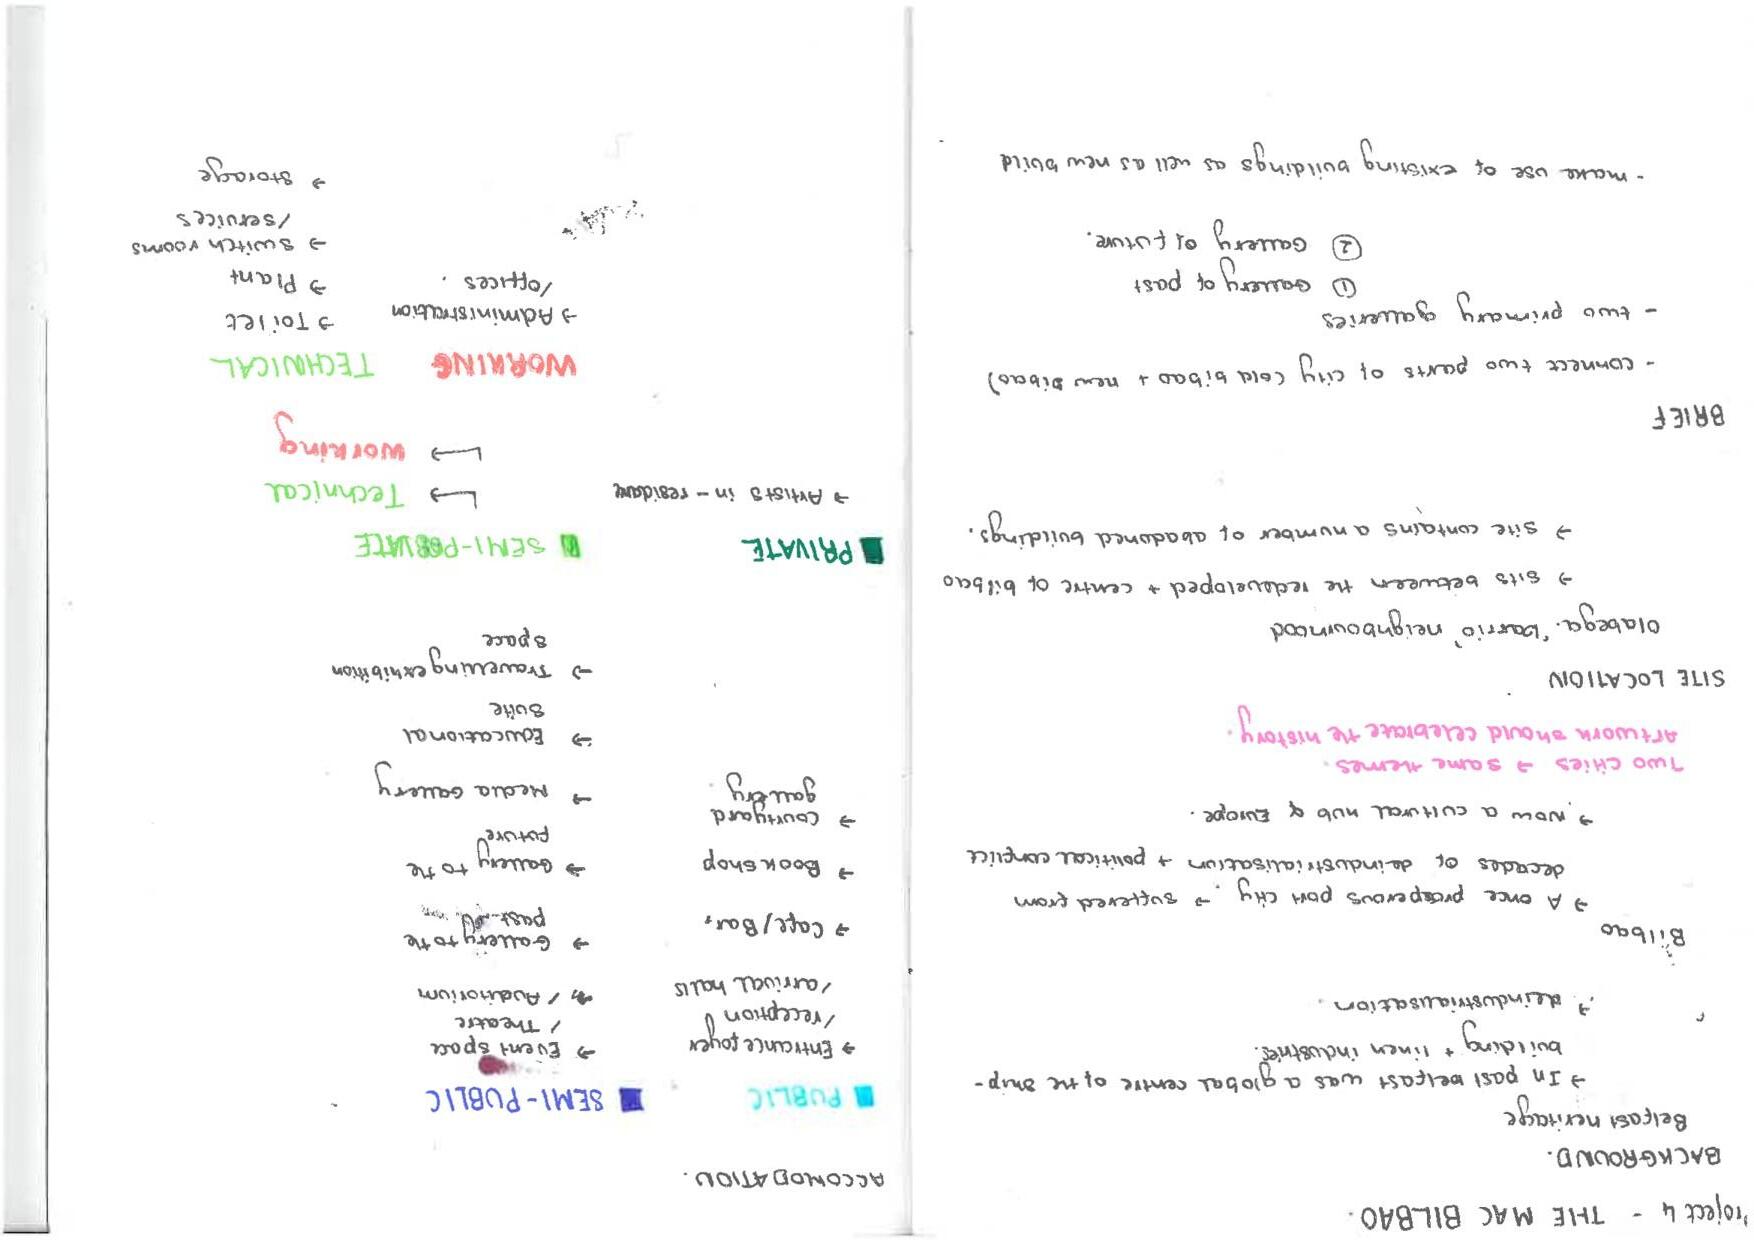 Project 4 - THE MAC BILBAO.
BACKGROUND.
Belfast heritage
→ In past belfast was a global centre of the ship-
building + linen industries.
→ deindustrialisation.
Bilbao
→ A once prosperous port city. → suffered from
decades of deindustrialisation + political conflict
→ Now a cultural hub of Europe.
Two cities → same themes.
Artwork should celebrate the history.
SITE LOCATION
Olabega. "barrio" neighbourhood
→ sits between the redeveloped + centre of bilbao
→ site contains a number of abadoned buildings.
BRIEF
- connect two parts of city (old bibao + new bibao)
- two primary galleries
① Gallery of past
② Gallery of future.
- make use of existing buildings as well as new build
ACCOMODATION.
PUBLIC
→ Entrance foyer
/reception
/arrival halls
→ Cafe/Bar
→ Bookshop
→ Courtyard
gallery
SEMI-PUBLIC
→ Event space
/ Theatre
/ Auditorium
→ Gallery to the
past
→ Gallery to the
future
→ Media Gallery
→ Educational
Suite
→ Travelling exhibition
space
PRIVATE
→ Artists in-residance
SEMI-PRIVATE
→ Technical
→ Working
WORKING
→ Administration
/offices.
TECHNICAL
→ Toilet
→ Plant
→ Switch rooms
/services
→ Storage